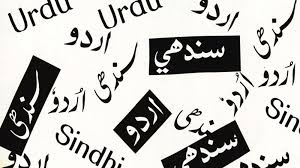 Urdu
Urdu
اردو
سنڌي
سنڌي
اُردُو
اردو
سنڌي
اُردُو
اردو
Sindhi
اُردُو
سنڌي
Sindhi